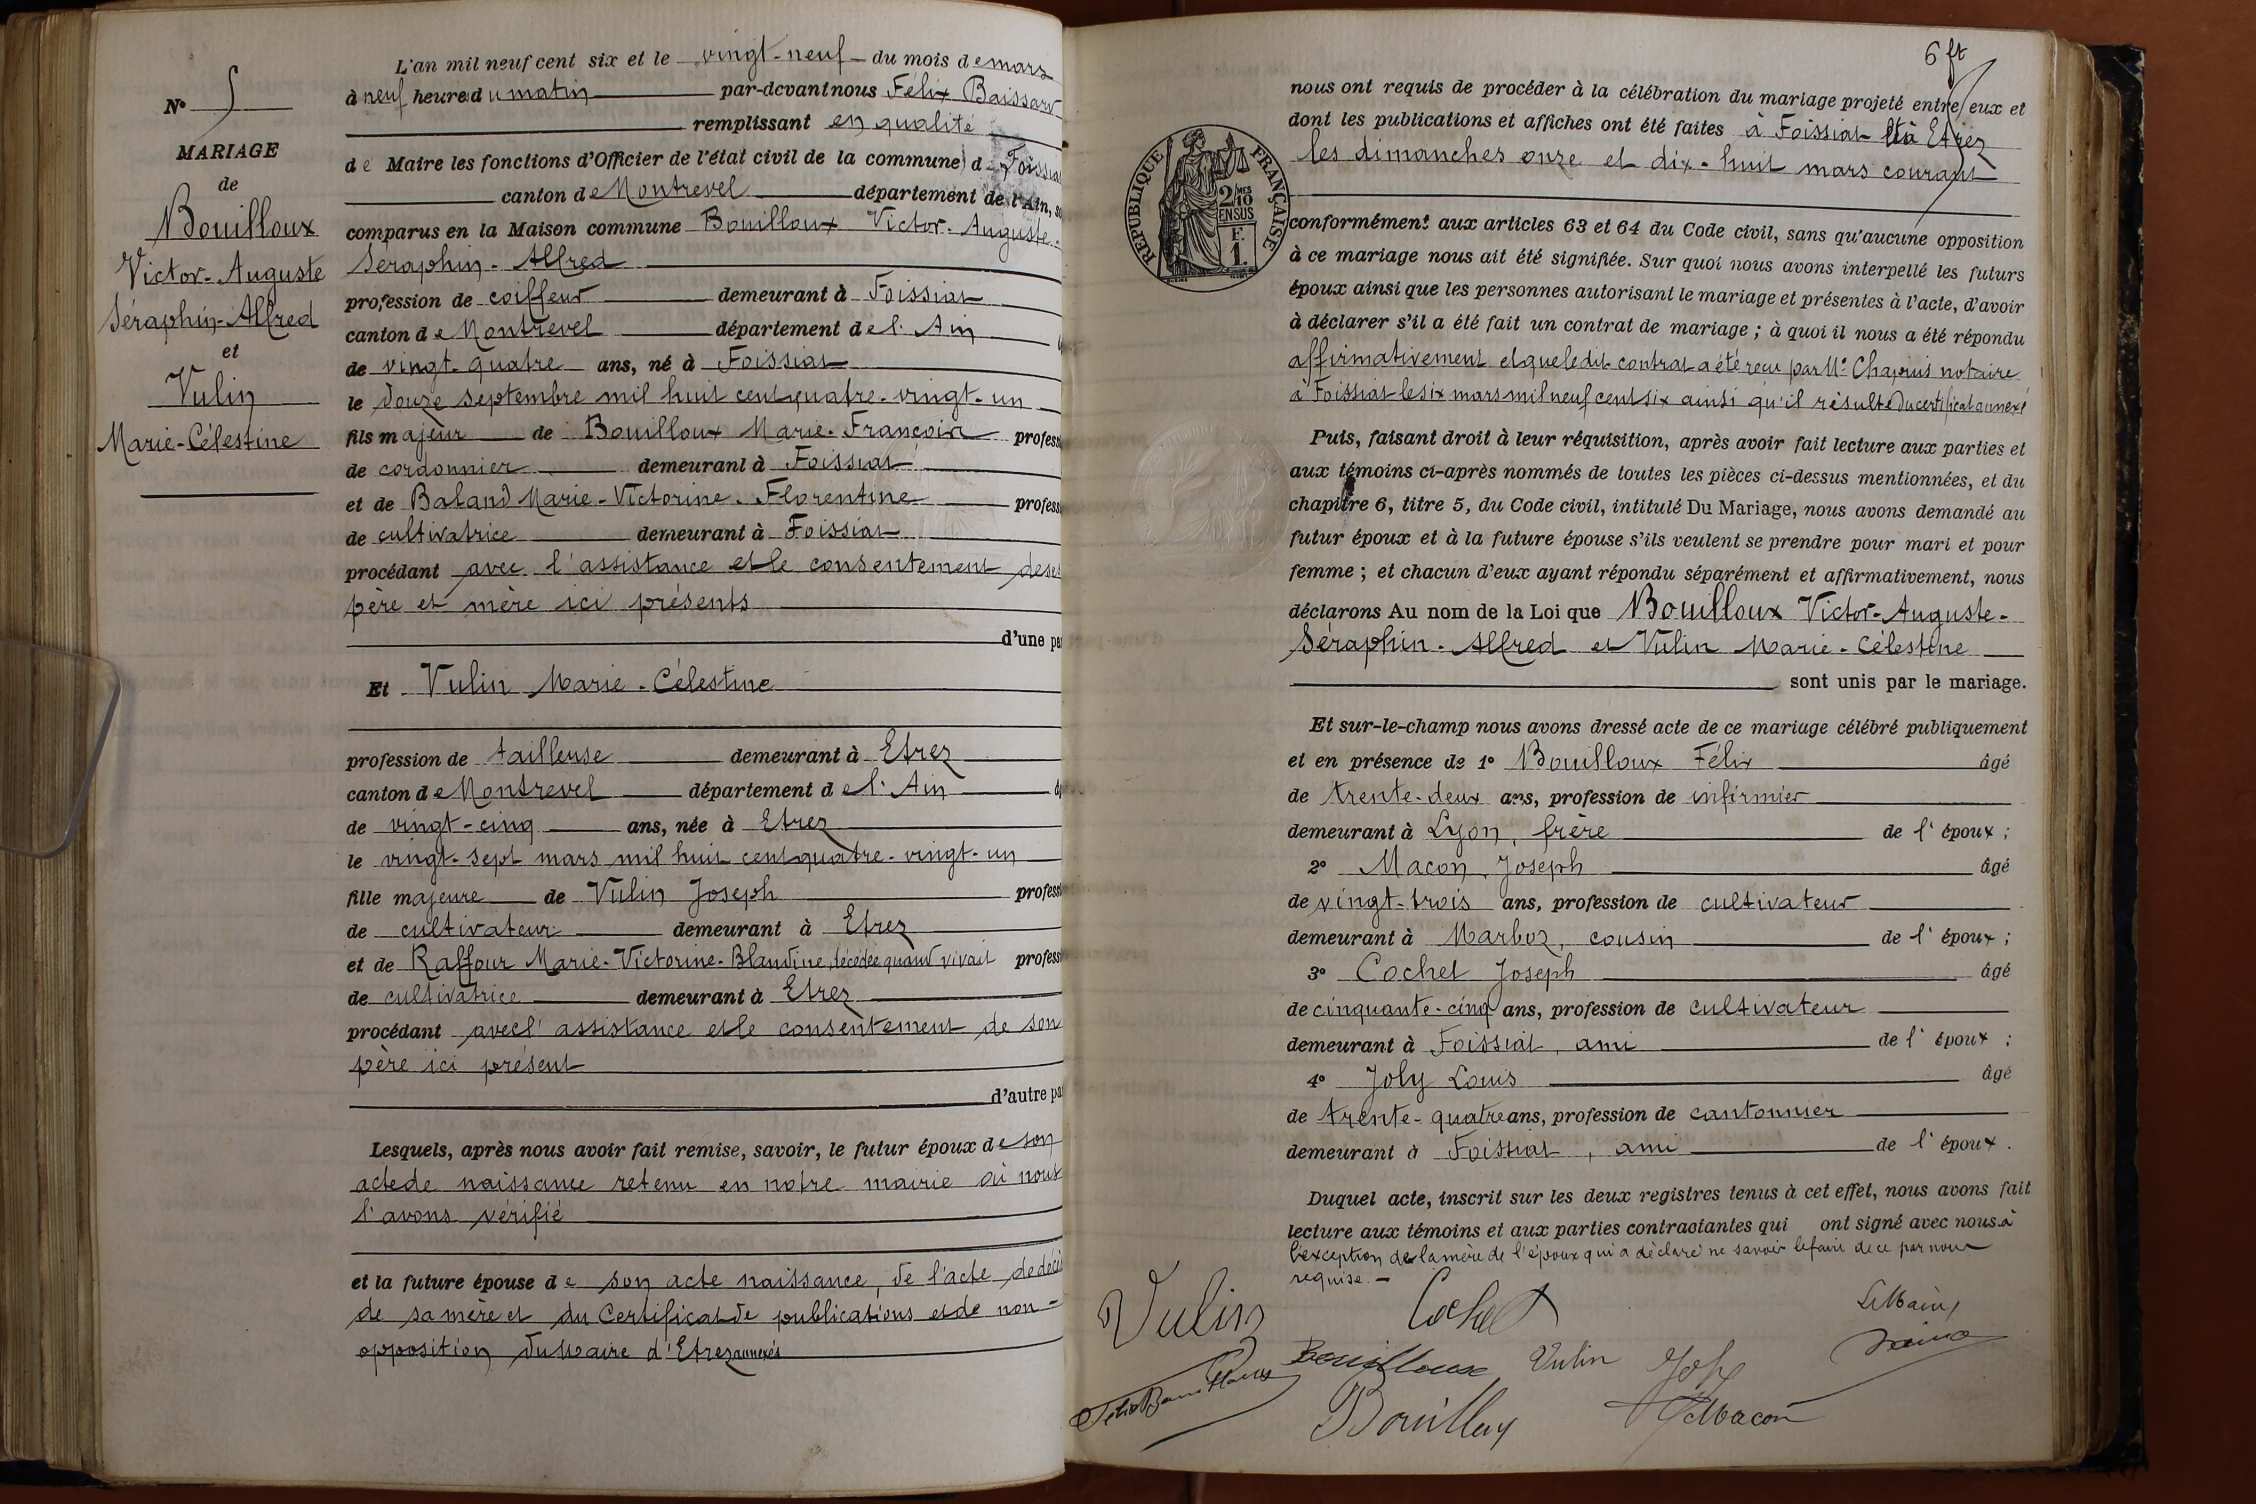 N° 5
MARIAGE
de
Bouilloux
Victor-Auguste
Séraphin-Alfred
et
Vulin
Marie-Célestine
L'an mil neuf cent six et le vingt-neuf du mois de mars
à neuf heure du matin par-devant nous Félix
remplissant en qualité
de Maire les fonctions d'Officier de l'état civil de la commune d
canton de Montrevel département de l'Ain,
comparus en la Maison commune Bouilloux Victor-Auguste-
Séraphin-Alfred
profession de coiffeur demeurant à Foissiat
canton de Montrevel département de l'Ain
de vingt-quatre ans, né à Foissiat
le douze septembre mil huit cent quatre-vingt-un
fils majeur de Bouilloux Marie-François profess
de cordonnier demeurant à Foissiat
et de Baland Marie-Victorine-Florentine profess
de cultivatrice demeurant à Foissiat
procédant avec l'assistance et le consentement de ses
père et mère ici présents
d'une pa
Et Vulin Marie-Célestine
profession de tailleuse demeurant à Etrez
canton de Montrevel département de l'Ain
de vingt-cinq ans, née à Etrez
le vingt-sept mars mil huit cent quatre-vingt-un
fille majeure de Vulin Joseph profess
de cultivateur demeurant à Etrez
et de Raffour Marie-Victorine-Blandine, décédée quand vivait profess
de cultivatrice demeurant à Etrez
procédant avec l'assistance et le consentement de son
père ici présent
d'autre pa
Lesquels, après nous avoir fait remise, savoir, le futur époux de son
acte de naissance retenu en notre mairie où nous
l'avons vérifié
et la future épouse de son acte naissance, de l'acte de décè
de sa mère et du Certificat de publications et de non-
opposition du Maire d'Etrez annexés
6 ft
nous ont requis de procéder à la célébration du mariage projeté entre eux et
dont les publications et affiches ont été faites à Foissiat et à Etrez
les dimanches onze et dix-huit mars courant
RÉPUBLIQUE FRANÇAISE
2/10 MES
EN SUS
F.
1.
conformément aux articles 63 et 64 du Code civil, sans qu'aucune opposition
à ce mariage nous ait été signifiée. Sur quoi nous avons interpellé les futurs
époux ainsi que les personnes autorisant le mariage et présentes à l'acte, d'avoir
à déclarer s'il a été fait un contrat de mariage ; à quoi il nous a été répondu
affirmativement et que ledit contrat a été reçu par Me Chapuis notaire
à Foissiat le six mars mil neuf cent six ainsi qu'il résulte du certificat annexé
Puis, faisant droit à leur réquisition, après avoir fait lecture aux parties et
aux témoins ci-après nommés de toutes les pièces ci-dessus mentionnées, et du
chapitre 6, titre 5, du Code civil, intitulé Du Mariage, nous avons demandé au
futur époux et à la future épouse s'ils veulent se prendre pour mari et pour
femme ; et chacun d'eux ayant répondu séparément et affirmativement, nous
déclarons Au nom de la Loi que Bouilloux Victor-Auguste-
Séraphin-Alfred et Vulin Marie-Célestine
sont unis par le mariage.
Et sur-le-champ nous avons dressé acte de ce mariage célébré publiquement
et en présence de 1° Bouilloux Félix âgé
de trente-deux ans, profession de infirmier
demeurant à Lyon, frère de l'époux ;
2° Macon Joseph âgé
de vingt-trois ans, profession de cultivateur
demeurant à Marboz, cousin de l'époux ;
3° Cochet Joseph âgé
de cinquante-cinq ans, profession de cultivateur
demeurant à Foissiat, ami de l'époux ;
4° Joly Louis âgé
de trente-quatre ans, profession de cantonnier
demeurant à Foissiat, ami de l'époux.
Duquel acte, inscrit sur les deux registres tenus à cet effet, nous avons fait
lecture aux témoins et aux parties contractantes qui ont signé avec nous à
l'exception de la mère de l'époux qui a déclaré ne savoir le faire de ce par nous
requise.
Vulin Cochet Le Maire,
Félix Bouilloux Bouilloux Vulin Joly
Bouilloux J Macon